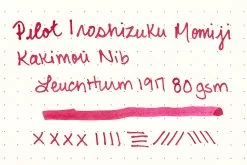 Pilot Iroshizuku Momiji
Kakimori Nib
Leuchtturm 1917 80 gsm
X X X X